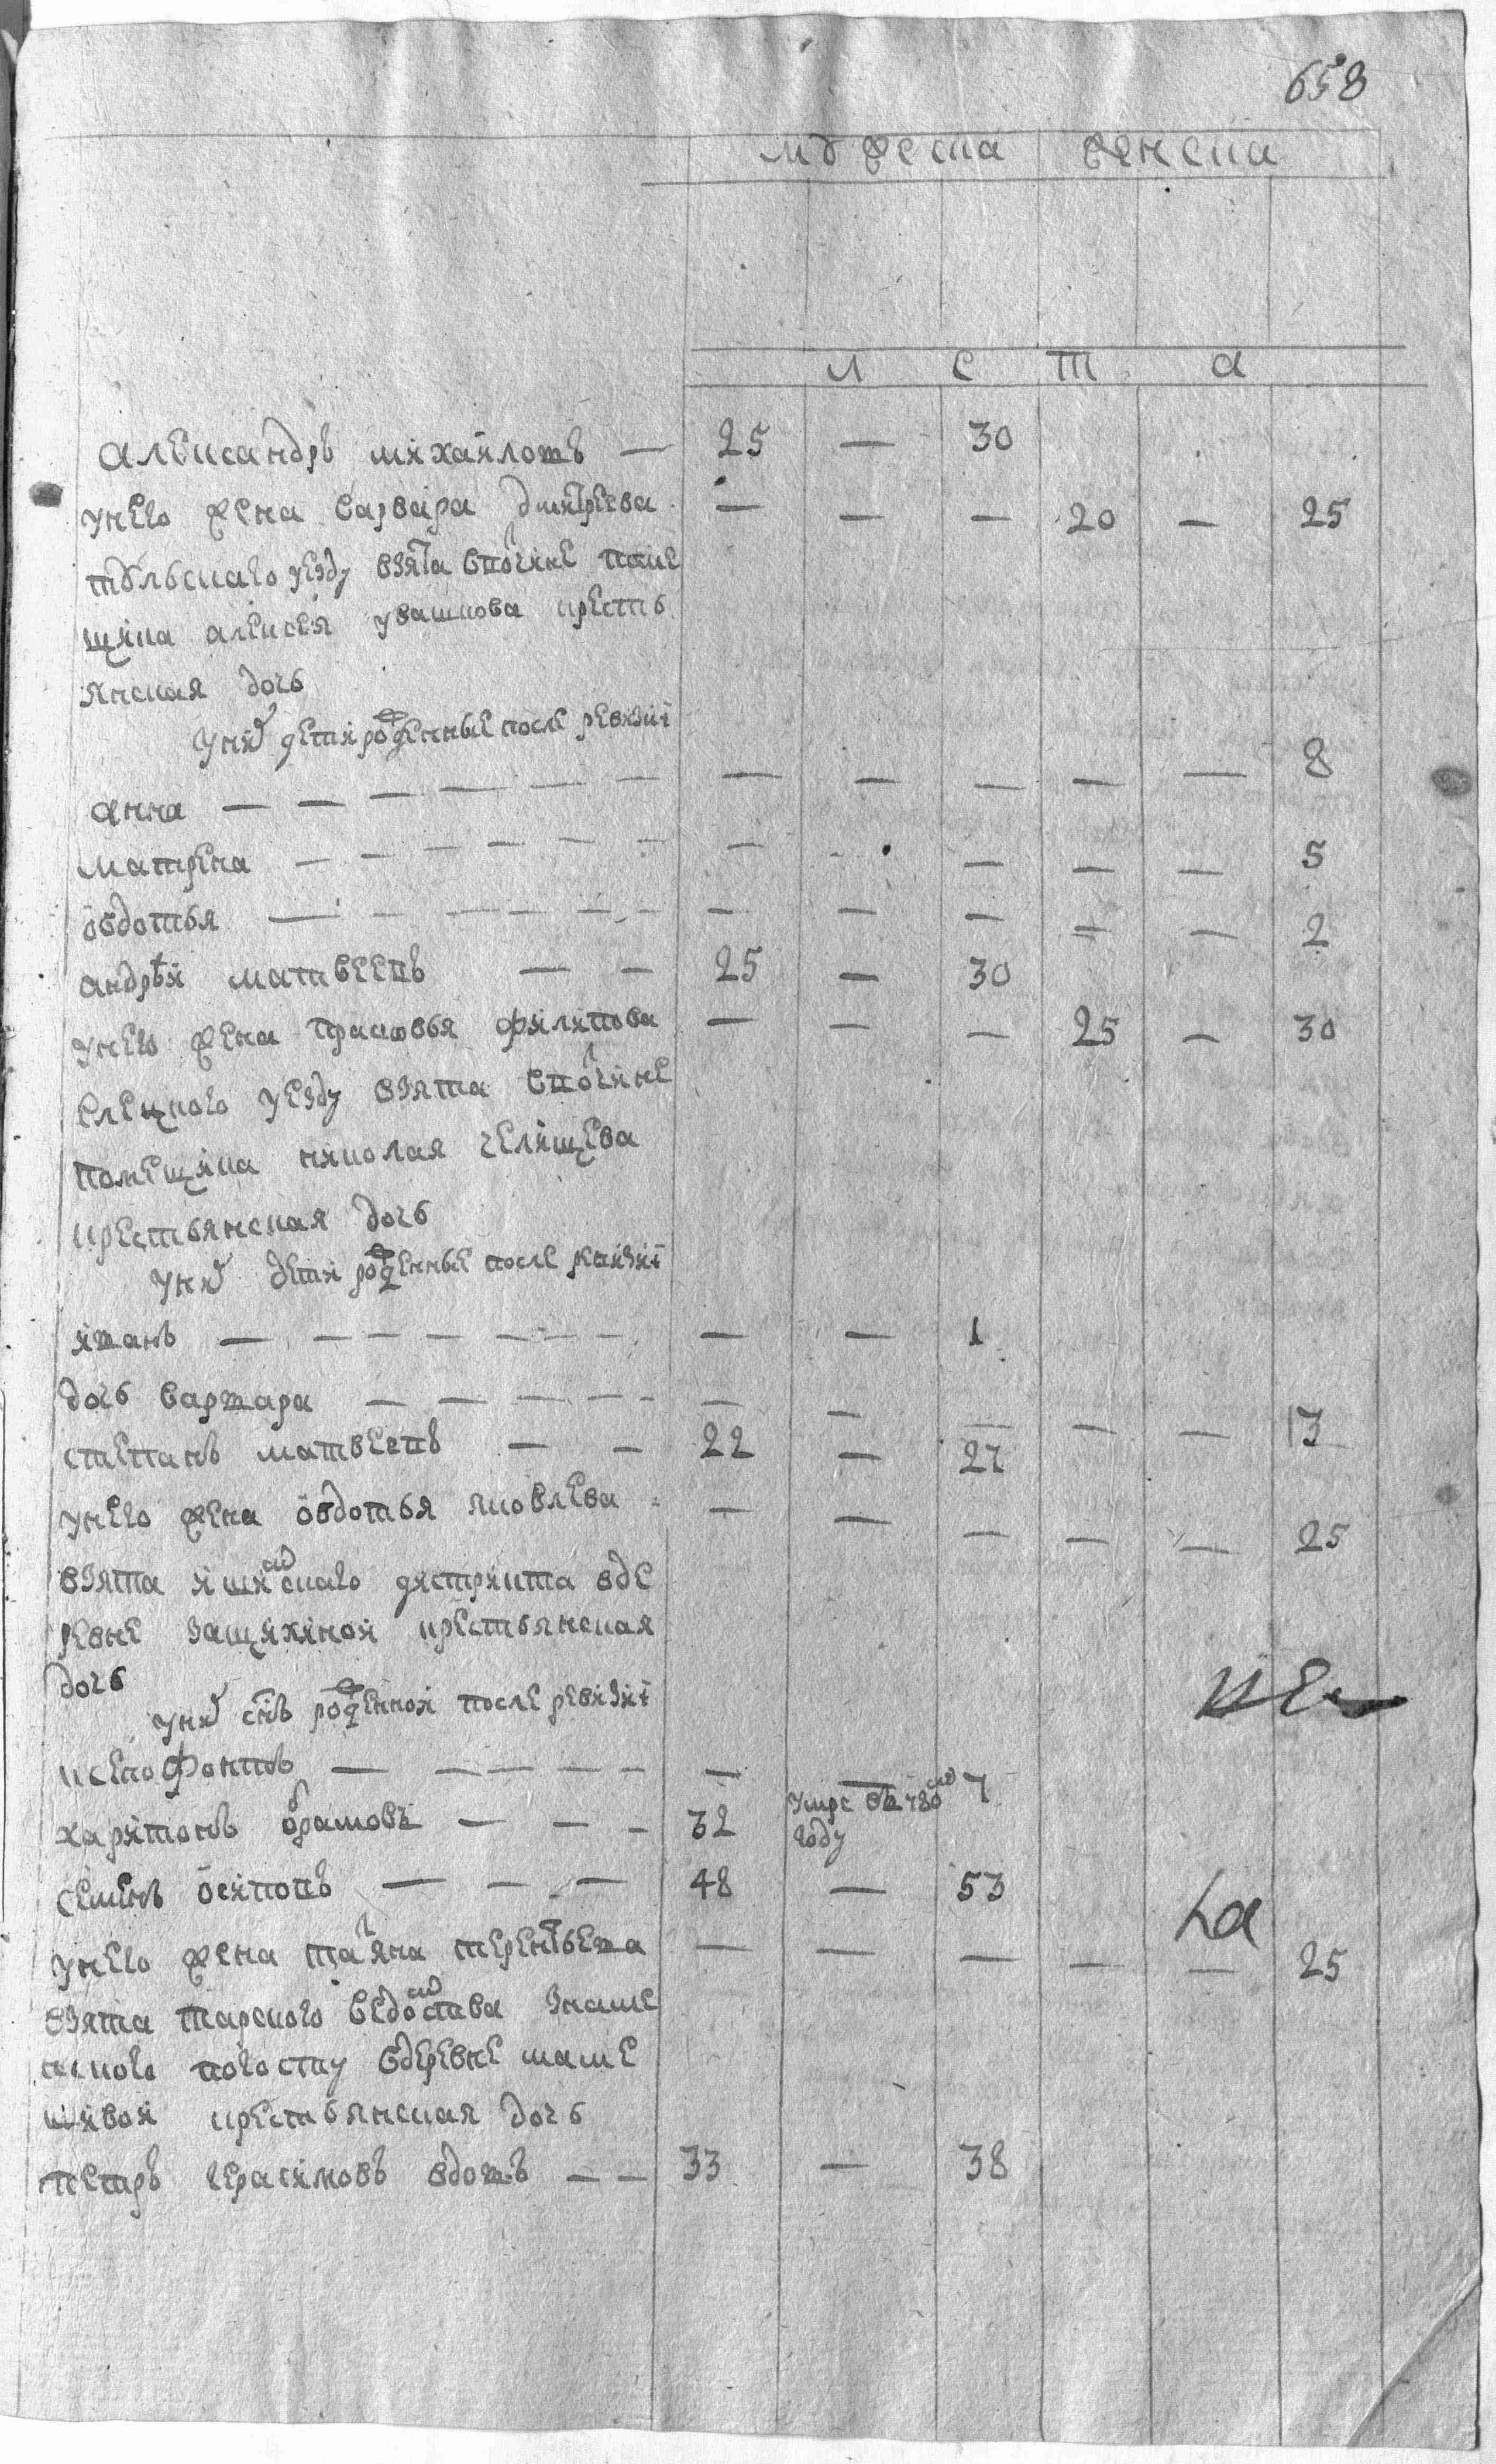 658
мужеска женска
л е т а
александръ михайловъ — 25 — 30
унего жена варвара дмитрева — — — 20 — 25
тульскаго уезду взята вотчине поме
щика алексея ушакова кресть
янская дочь
уних дети рожденные после ревизиi
анна — — — — — — — — — — — 8
матрена — — — — — — — — — — 5
овдотья — — — — — — — — — — — 2
андрѣй матвеевъ — — 25 — 30
унего жена прасковья филипова — — — 25 — 30
елецкого уезду взята вотчине
помещика николая челищева
крестьянская дочь
уних дети рожденные после ревизиi
иванъ — — — — — — — — 1
дочь варвара — — — — — — — — — — 13
степанъ матвеевъ — — 22 — 27
унего жена овдотья яковлева — — — — — 25
взята дистрикта вде
ревне защихиной крестьянская
дочь
уних снъ рожденной после ревизиi
ксенофонтъ — — — — — — — 7
харитонъ абрамовъ — — — 32 умре въ 780 году
семенъ осиповъ — — — 48 — 53
унего жена татьяна терентьева — — — — — 25
взята тарского ведомства знаме
нского погосту вдеревне
шивой крестьянская дочь
петръ герасимовъ вдовъ — — 33 — 38